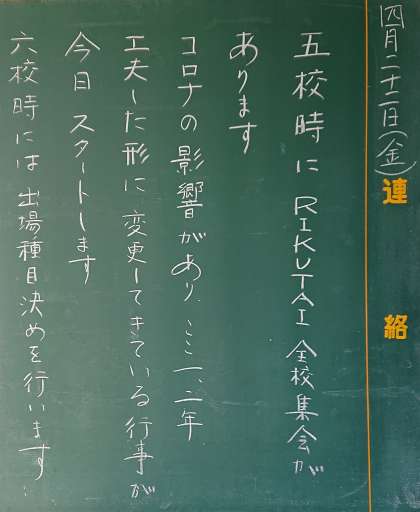 四月二十二日(金)
連絡
五校時に RIKUTAI 全校集会が
あります
コロナの影響があり、ここ一、二年
工夫した形に変更してきている行事が
今日 スタートします
六校時には 出場種目決めを行います…